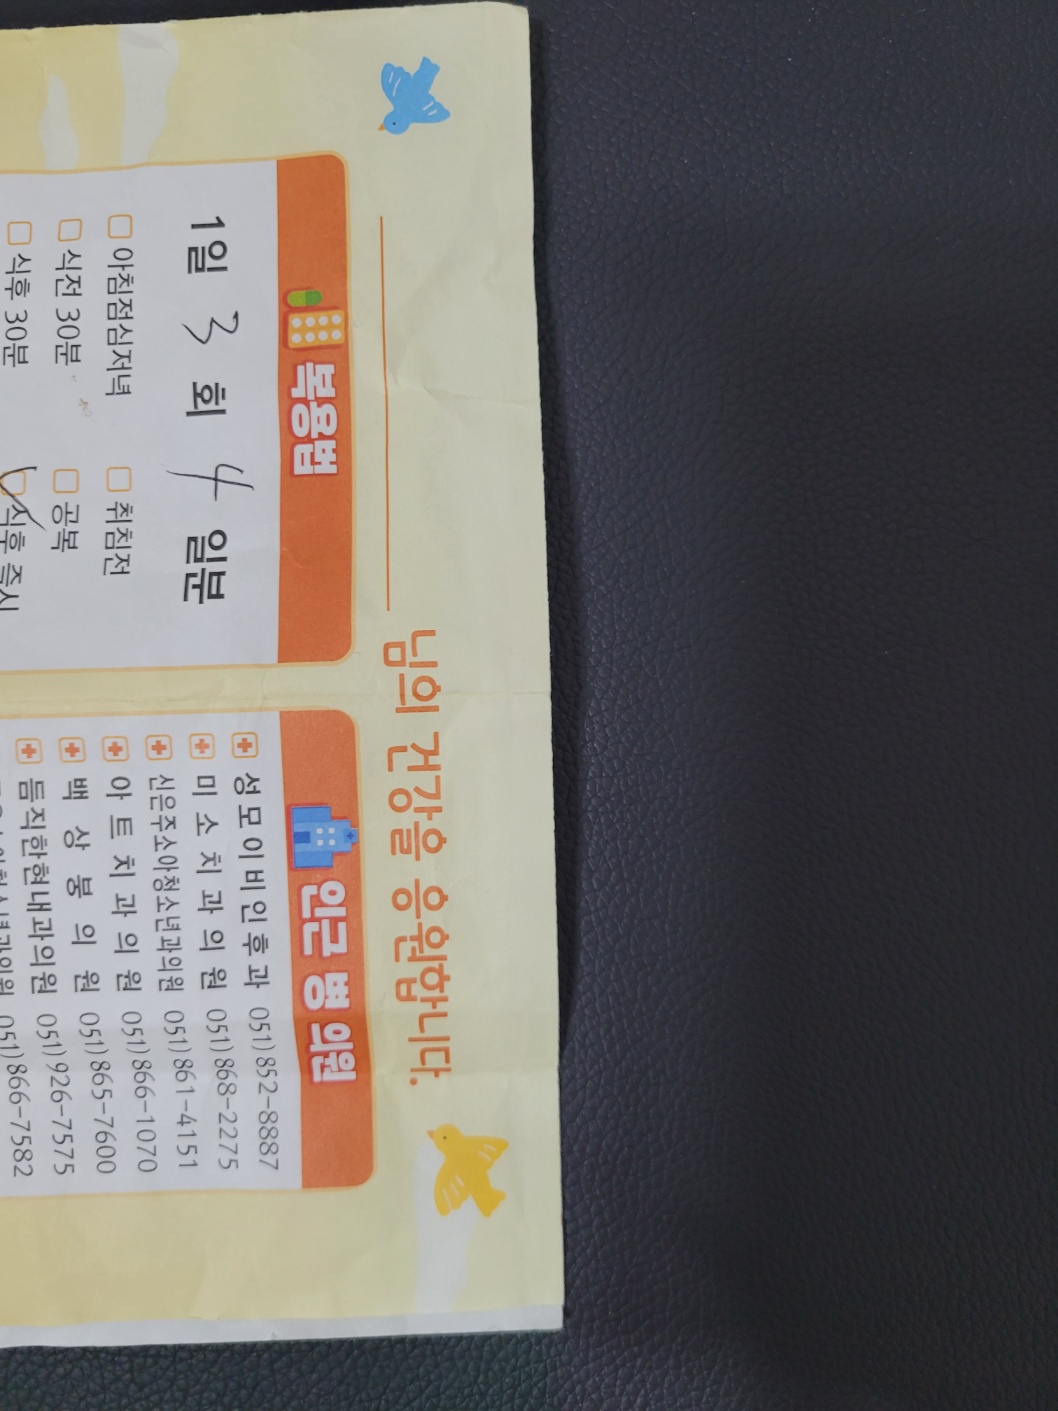 님의 건강을 응원합니다.
복용법
1일 3 회 4 일분
아침점심저녁 취침전
식전 30분 공복
식후 30분 식후 즉시
인근 병 의원
성모이비인후과 051) 852-8887
미소치과의원 051) 868-2275
신은주소아청소년과의원 051) 861-4151
아트치과의원 051) 866-1070
백상봉의원 051) 865-7600
듬직한현내과의원 051) 926-7575
051) 866-7582